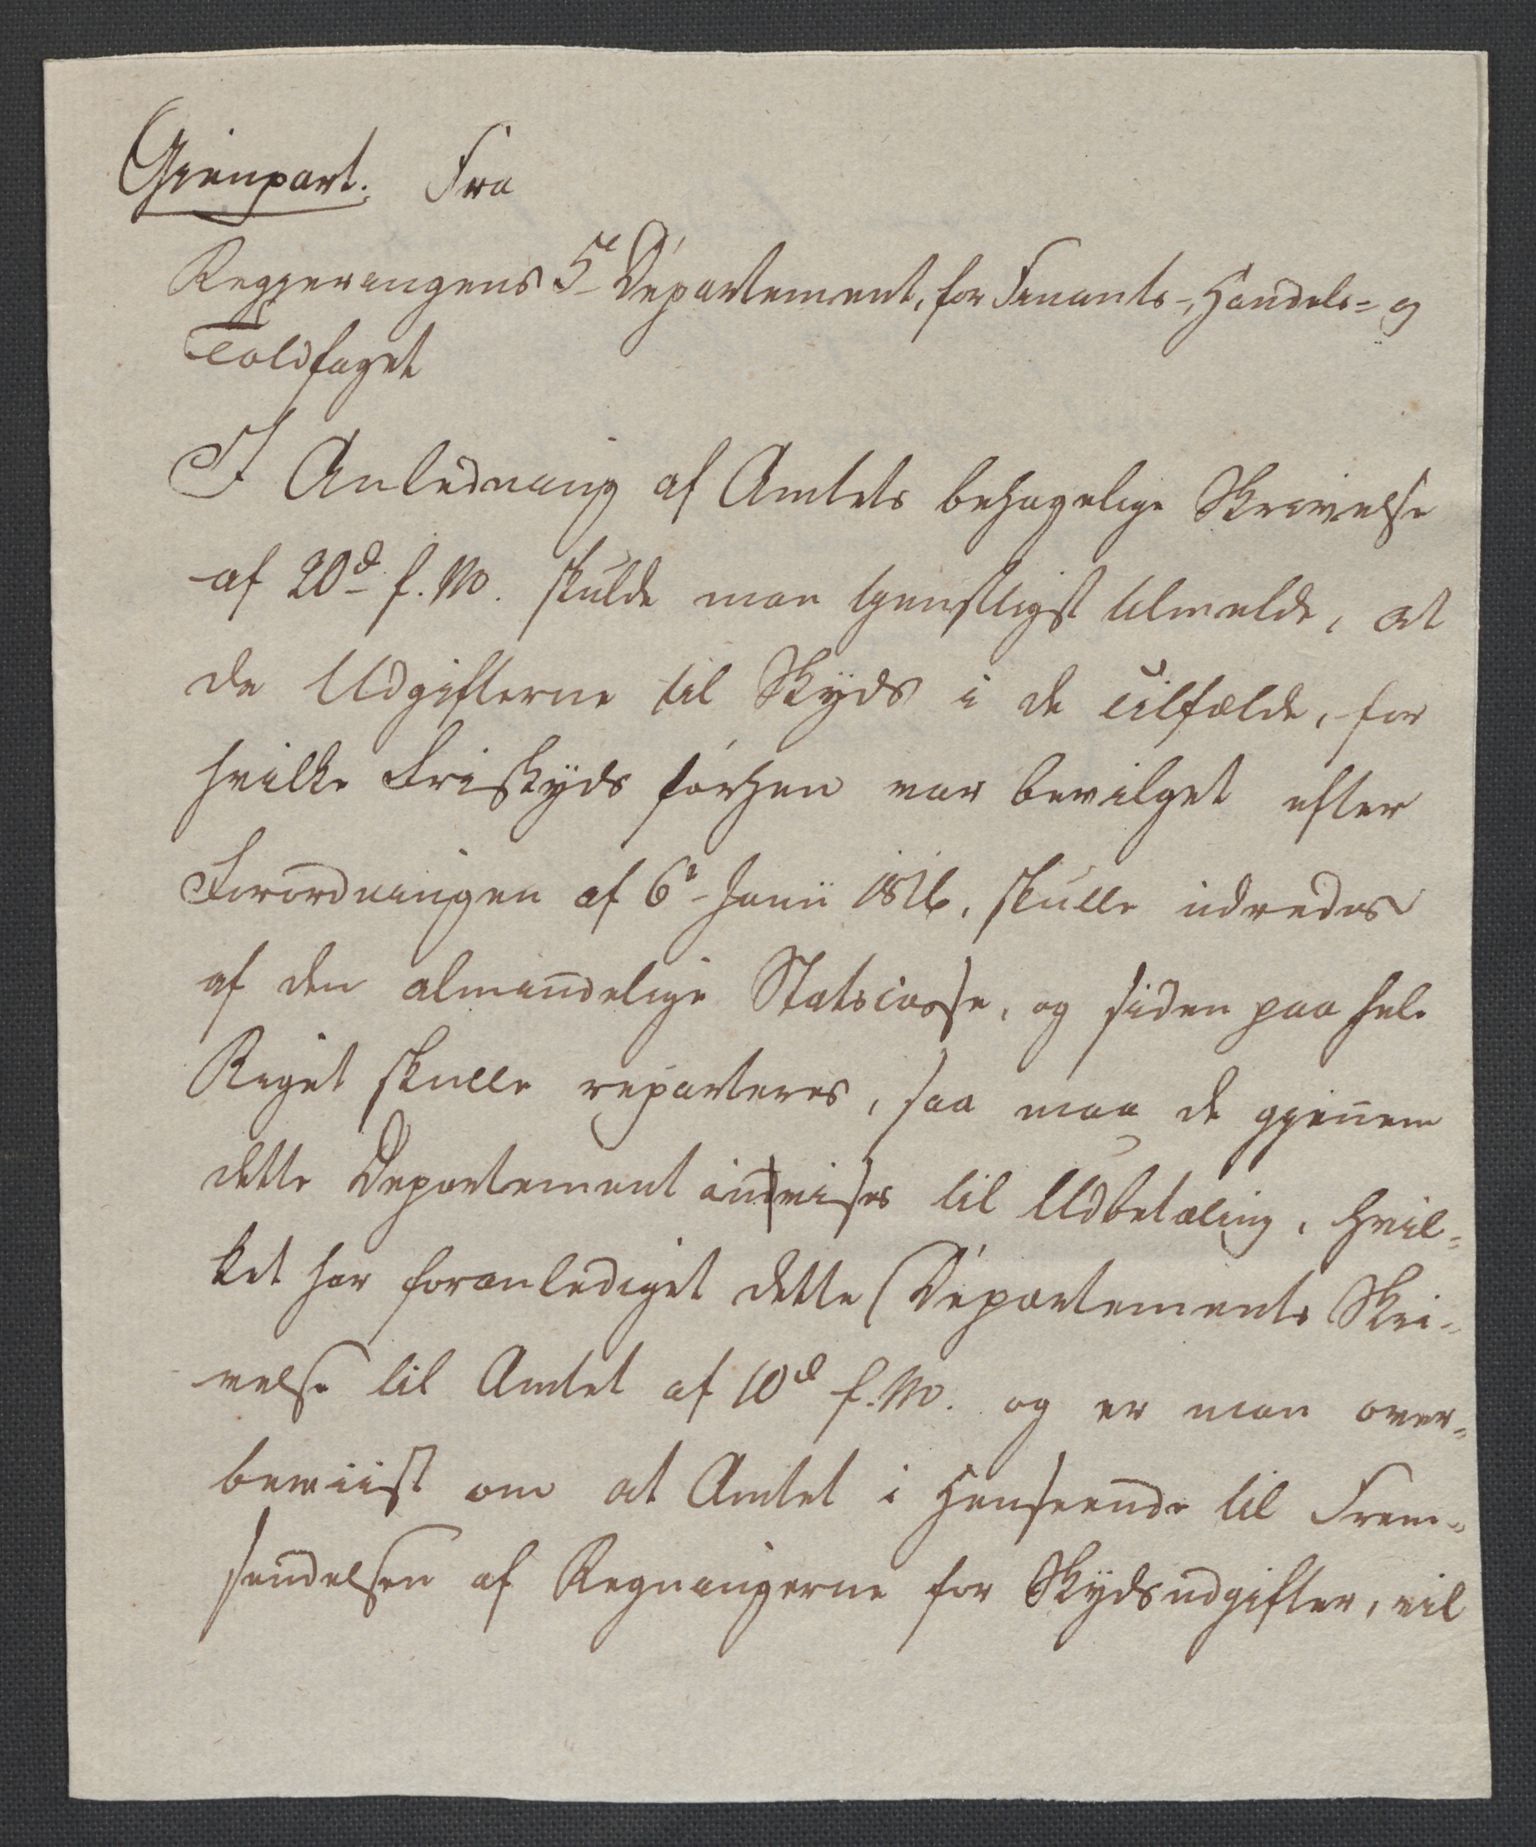 Gienpart. Fra
Regjeringens 5te Departement, for Finants-, Handels- og
Toldfaget
I Anledning af Amtets behagelige Skrivelse
af 20de f. M. skulde man tjenstligst tilmelde, at
da Udgifterne til Skyds i de Tilfælde, for
hvilke Friskyds forhen var bevilget efter
Forordningen af 6te Junii 1816, skulle udredes
af den almindelige Statscasse, og siden paa hele
Riget skulle reparteres, saa maa de gjennem
dette Departement anvises til Udbetaling, hvil-
ket har foranlediget dette Departements Skri-
velse til Amtet af 10de f. M. og er man over-
beviist om at Amtet i Henseende til Frem-
sendelsen af Regningerne for Skydsudgifter, vil